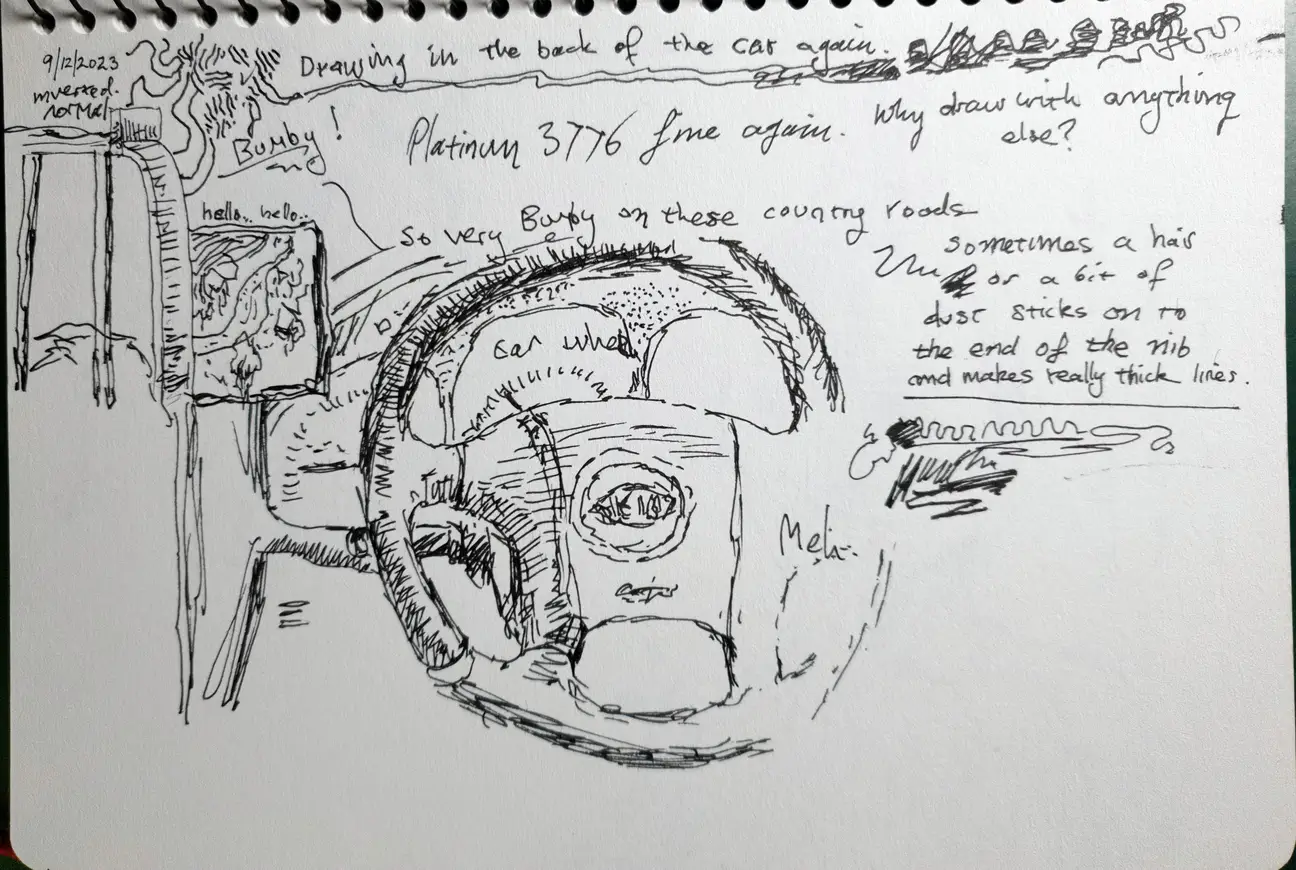 9/12/2023
inverted.
normal.
Drawing in the back of the car again.
Bumby!
Platinum 3776 fine again.
Why draw with anything
else?
hello.. hello..
So very Bumpy on these country roads
sometimes a hair
or a bit of
dust sticks on to
the end of the nib
and makes really thick lines.
car wheel
KIA
Meh..